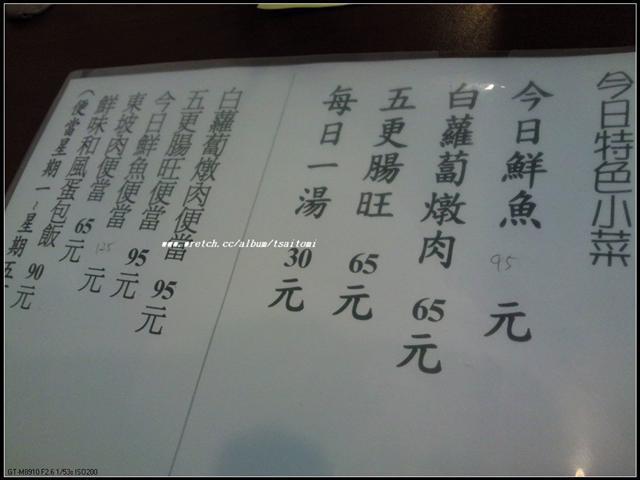 今日特色小菜
今日鮮魚 95 元
白蘿蔔燉肉 65元
五更腸旺 65元
每日一湯 30元
白蘿蔔燉肉便當 95元
五更腸旺便當 95元
今日鮮魚便當 125 元
東坡肉便當 65元
鮮味和風蛋包飯 90元
(便當星期一~星期五
www.wretch.cc/album/tsaitomi
GT-M8910 F2.6 1/53s ISO200